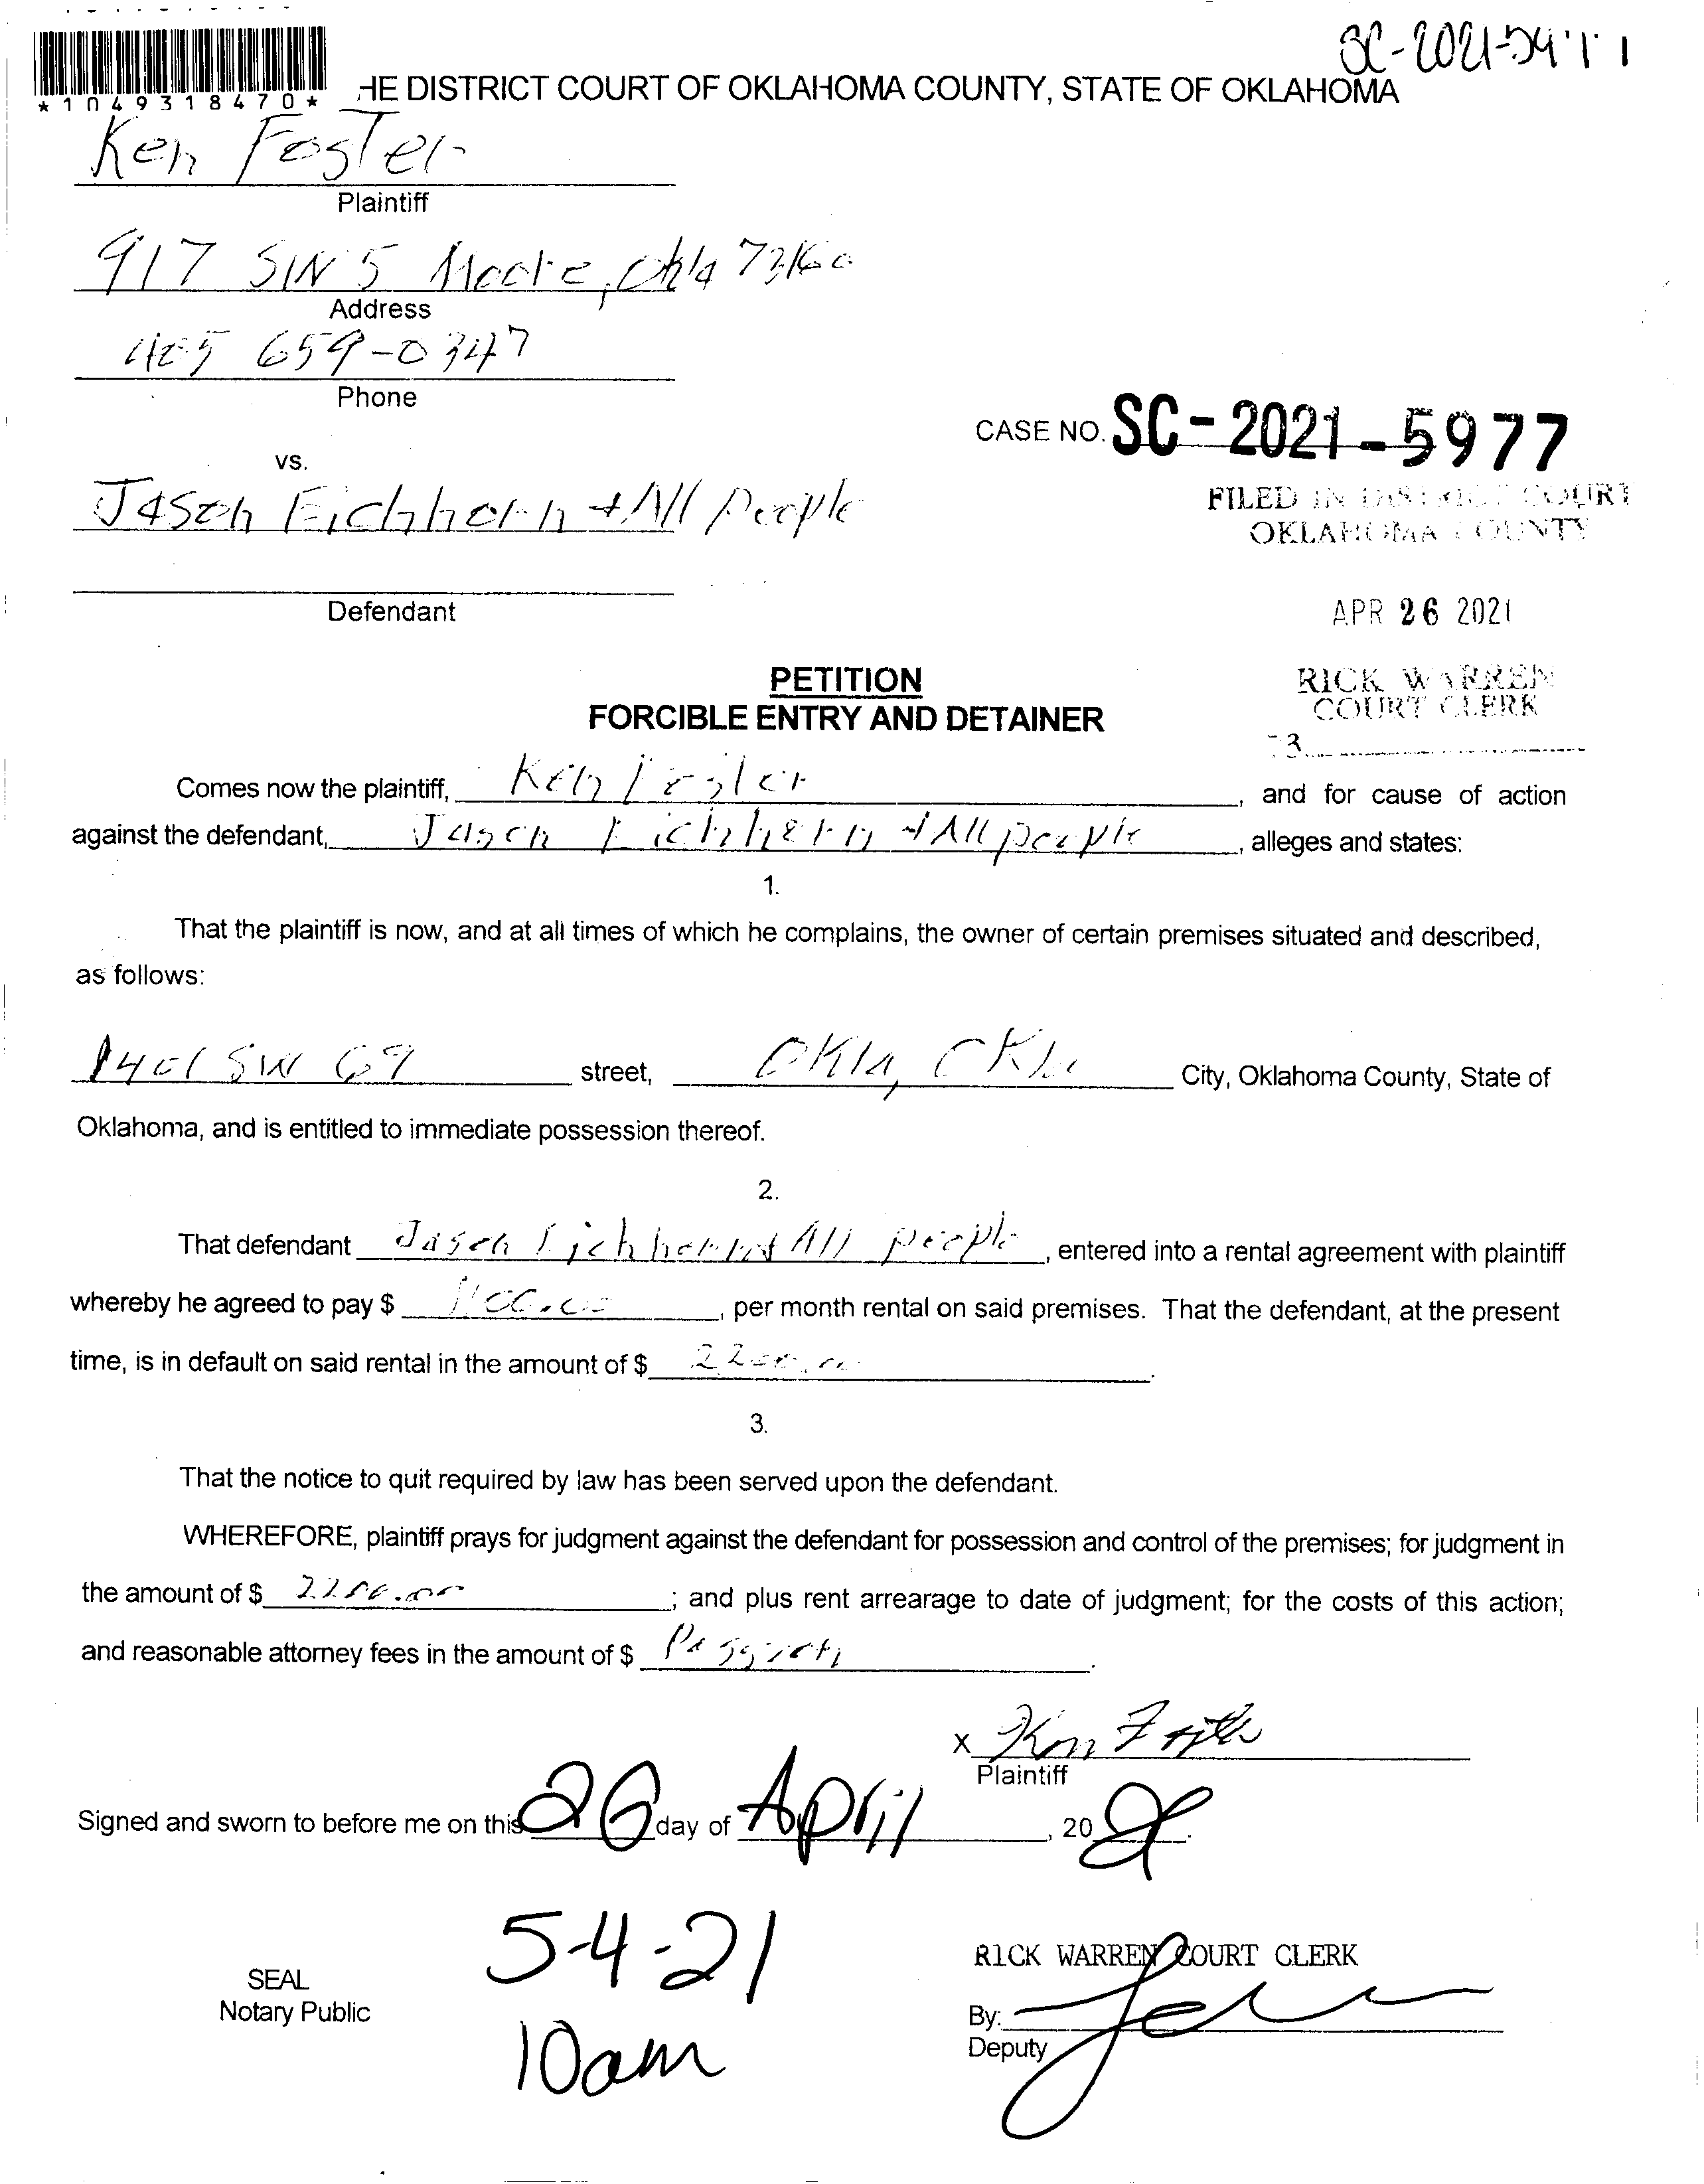 SC-2021-5977
*1049318470*
HE DISTRICT COURT OF OKLAHOMA COUNTY, STATE OF OKLAHOMA
Ken Foster
Plaintiff
917 SW 5 Moore, Okla 73160
Address
405 659-0347
Phone
CASE NO. SC-2021-5977
vs.
Jason Eichhorn + All people
FILED IN DISTRICT COURT
OKLAHOMA COUNTY
Defendant
APR 26 2021
PETITION
RICK WARREN
COURT CLERK
FORCIBLE ENTRY AND DETAINER
Comes now the plaintiff, Ken Foster, and for cause of action
against the defendant, Jason Eichhorn + All people, alleges and states:
1.
That the plaintiff is now, and at all times of which he complains, the owner of certain premises situated and described,
as follows:
1401 SW 69 street, Okla, Okla City, Oklahoma County, State of
Oklahoma, and is entitled to immediate possession thereof.
2.
That defendant Jason Eichhorn + All people, entered into a rental agreement with plaintiff
whereby he agreed to pay $ 1100.00, per month rental on said premises. That the defendant, at the present
time, is in default on said rental in the amount of $ 2200.00.
3.
That the notice to quit required by law has been served upon the defendant.
WHEREFORE, plaintiff prays for judgment against the defendant for possession and control of the premises; for judgment in
the amount of $ 2200.00; and plus rent arrearage to date of judgment; for the costs of this action;
and reasonable attorney fees in the amount of $
x Ken Foster
Plaintiff
Signed and sworn to before me on this 26 day of April, 2021.
5-4-21
RICK WARREN COURT CLERK
SEAL
Notary Public
By:
Deputy
10am